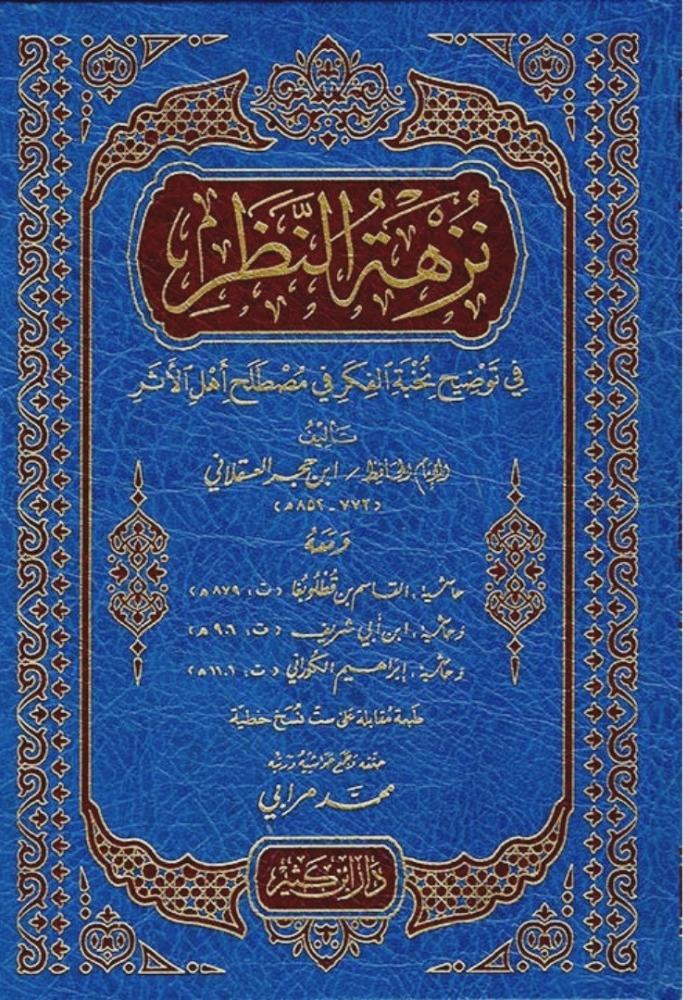 نُزْهَةُ النَّظَرِ
في تَوْضِيحِ نُخْبَةِ الفِكَرِ في مُصْطَلَحِ أَهْلِ الأَثَرِ
تَأليفُ
الإمام الحافظ / ابن حجر العسقلاني
(٧٧٣ - ٨٥٢ هـ)
ومعهُ
حاشية: القاسم بن قُطلُوبُغا (ت: ٨٧٩ هـ)
وحاشية: ابن أبي شريف (ت: ٩٠٦ هـ)
وحاشية: إبراهيم الكوراني (ت: ١١٠١ هـ)
طبعة مُقابلة على ستّ نُسَخ خطيّة
حققه وجمع حواشيه ورتبه
محمد مرابي
دار ابن كثير